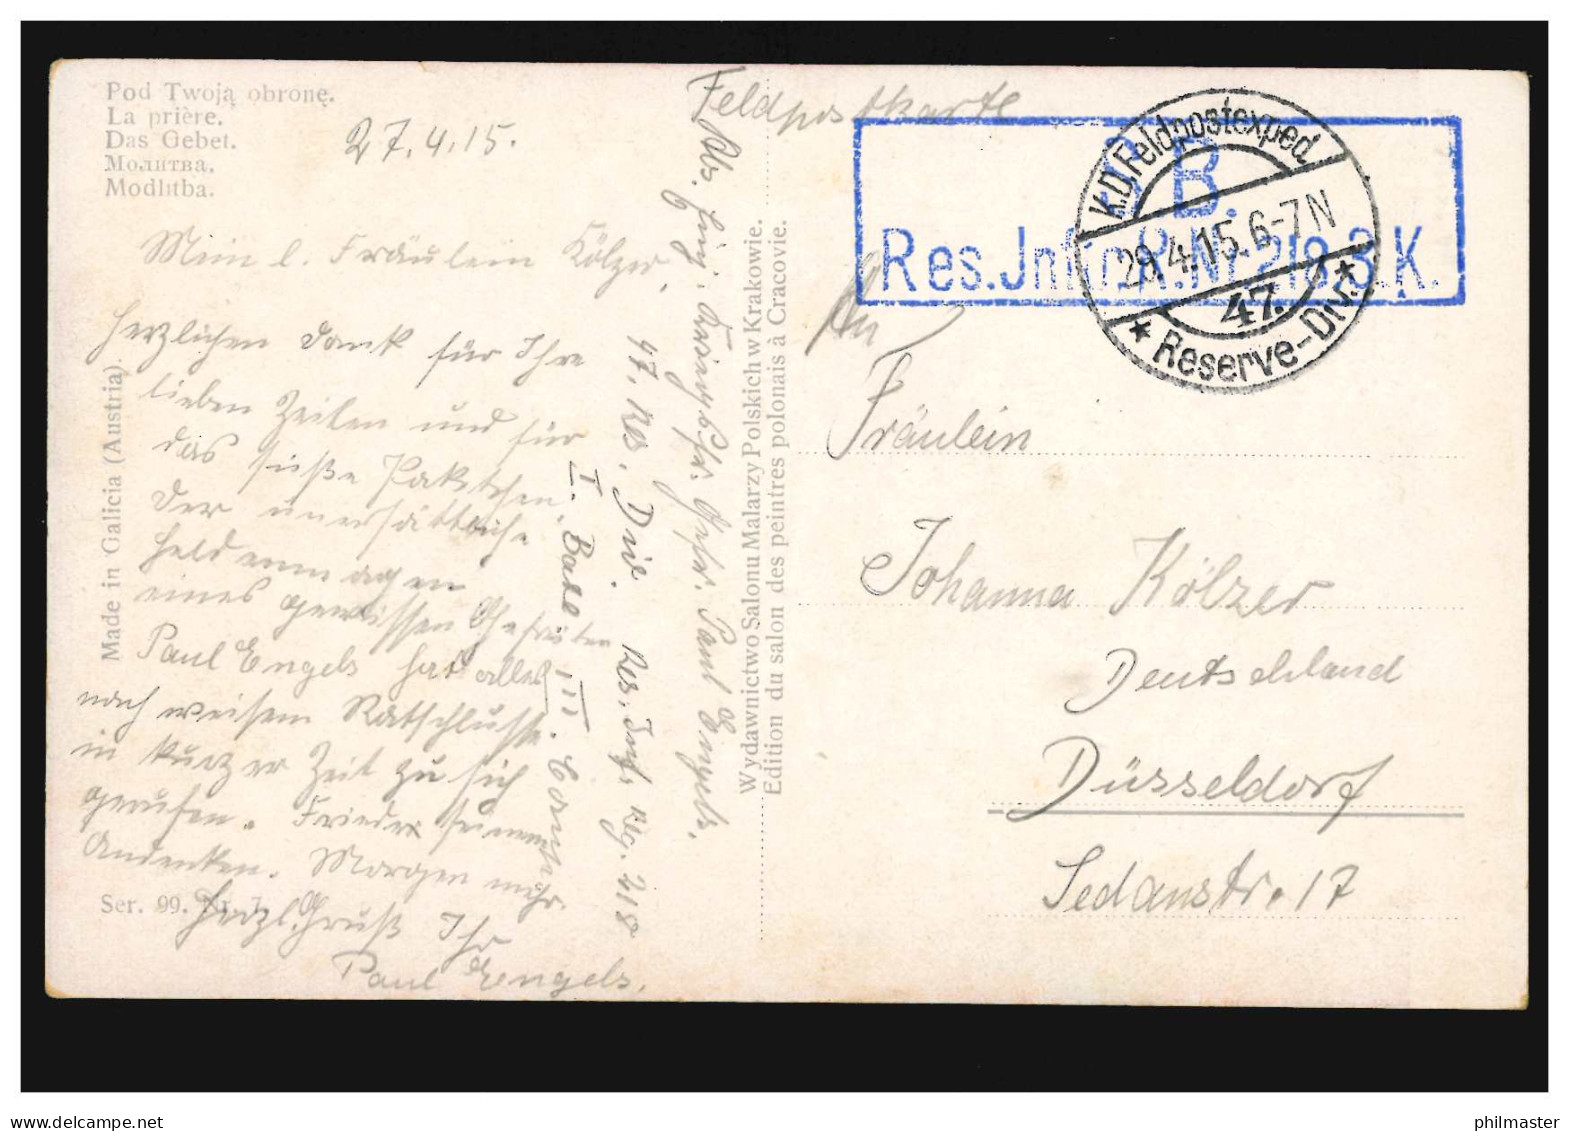 Pod Twoją obronę.
La prière.
Das Gebet.
Молитва.
Modlitba.
27.4.15.
Mein l. Fräulein Kölzer,
herzlichen Dank für Ihre
lieben Zeilen und für
das süße Paketchen,
der unersättliche
Heldenmagen
eines gewissen Gefreiten
Paul Engels hat alles
nach weisem Ratschlusse
in kurzer Zeit zu sich
gerufen. Friede seinem
Andenken. Morgen mehr
Herzl. Gruß Ihr
Paul Engels.
Ser. 99. Nr. 7.
Made in Galicia (Austria).
Abs. Kriegsfr. Gefr. Paul Engels.
47. Res. Div. Res. Inf. Reg. 218
I. Batl III. Comp.
Wydawnictwo Salonu Malarzy Polskich w Krakowie.
Edition du salon des peintres polonais à Cracovie.
Feldpostkarte
S.B.
Res.Jnftr.R.Nr.218.3.K.
K.D.Feldpostexped
29.4.15.6-7N
47.
* Reserve-Div. *
An
Fräulein
Johanna Kölzer
Deutschland
Düsseldorf
Sedanstr. 17
delcampe.net
philmaster